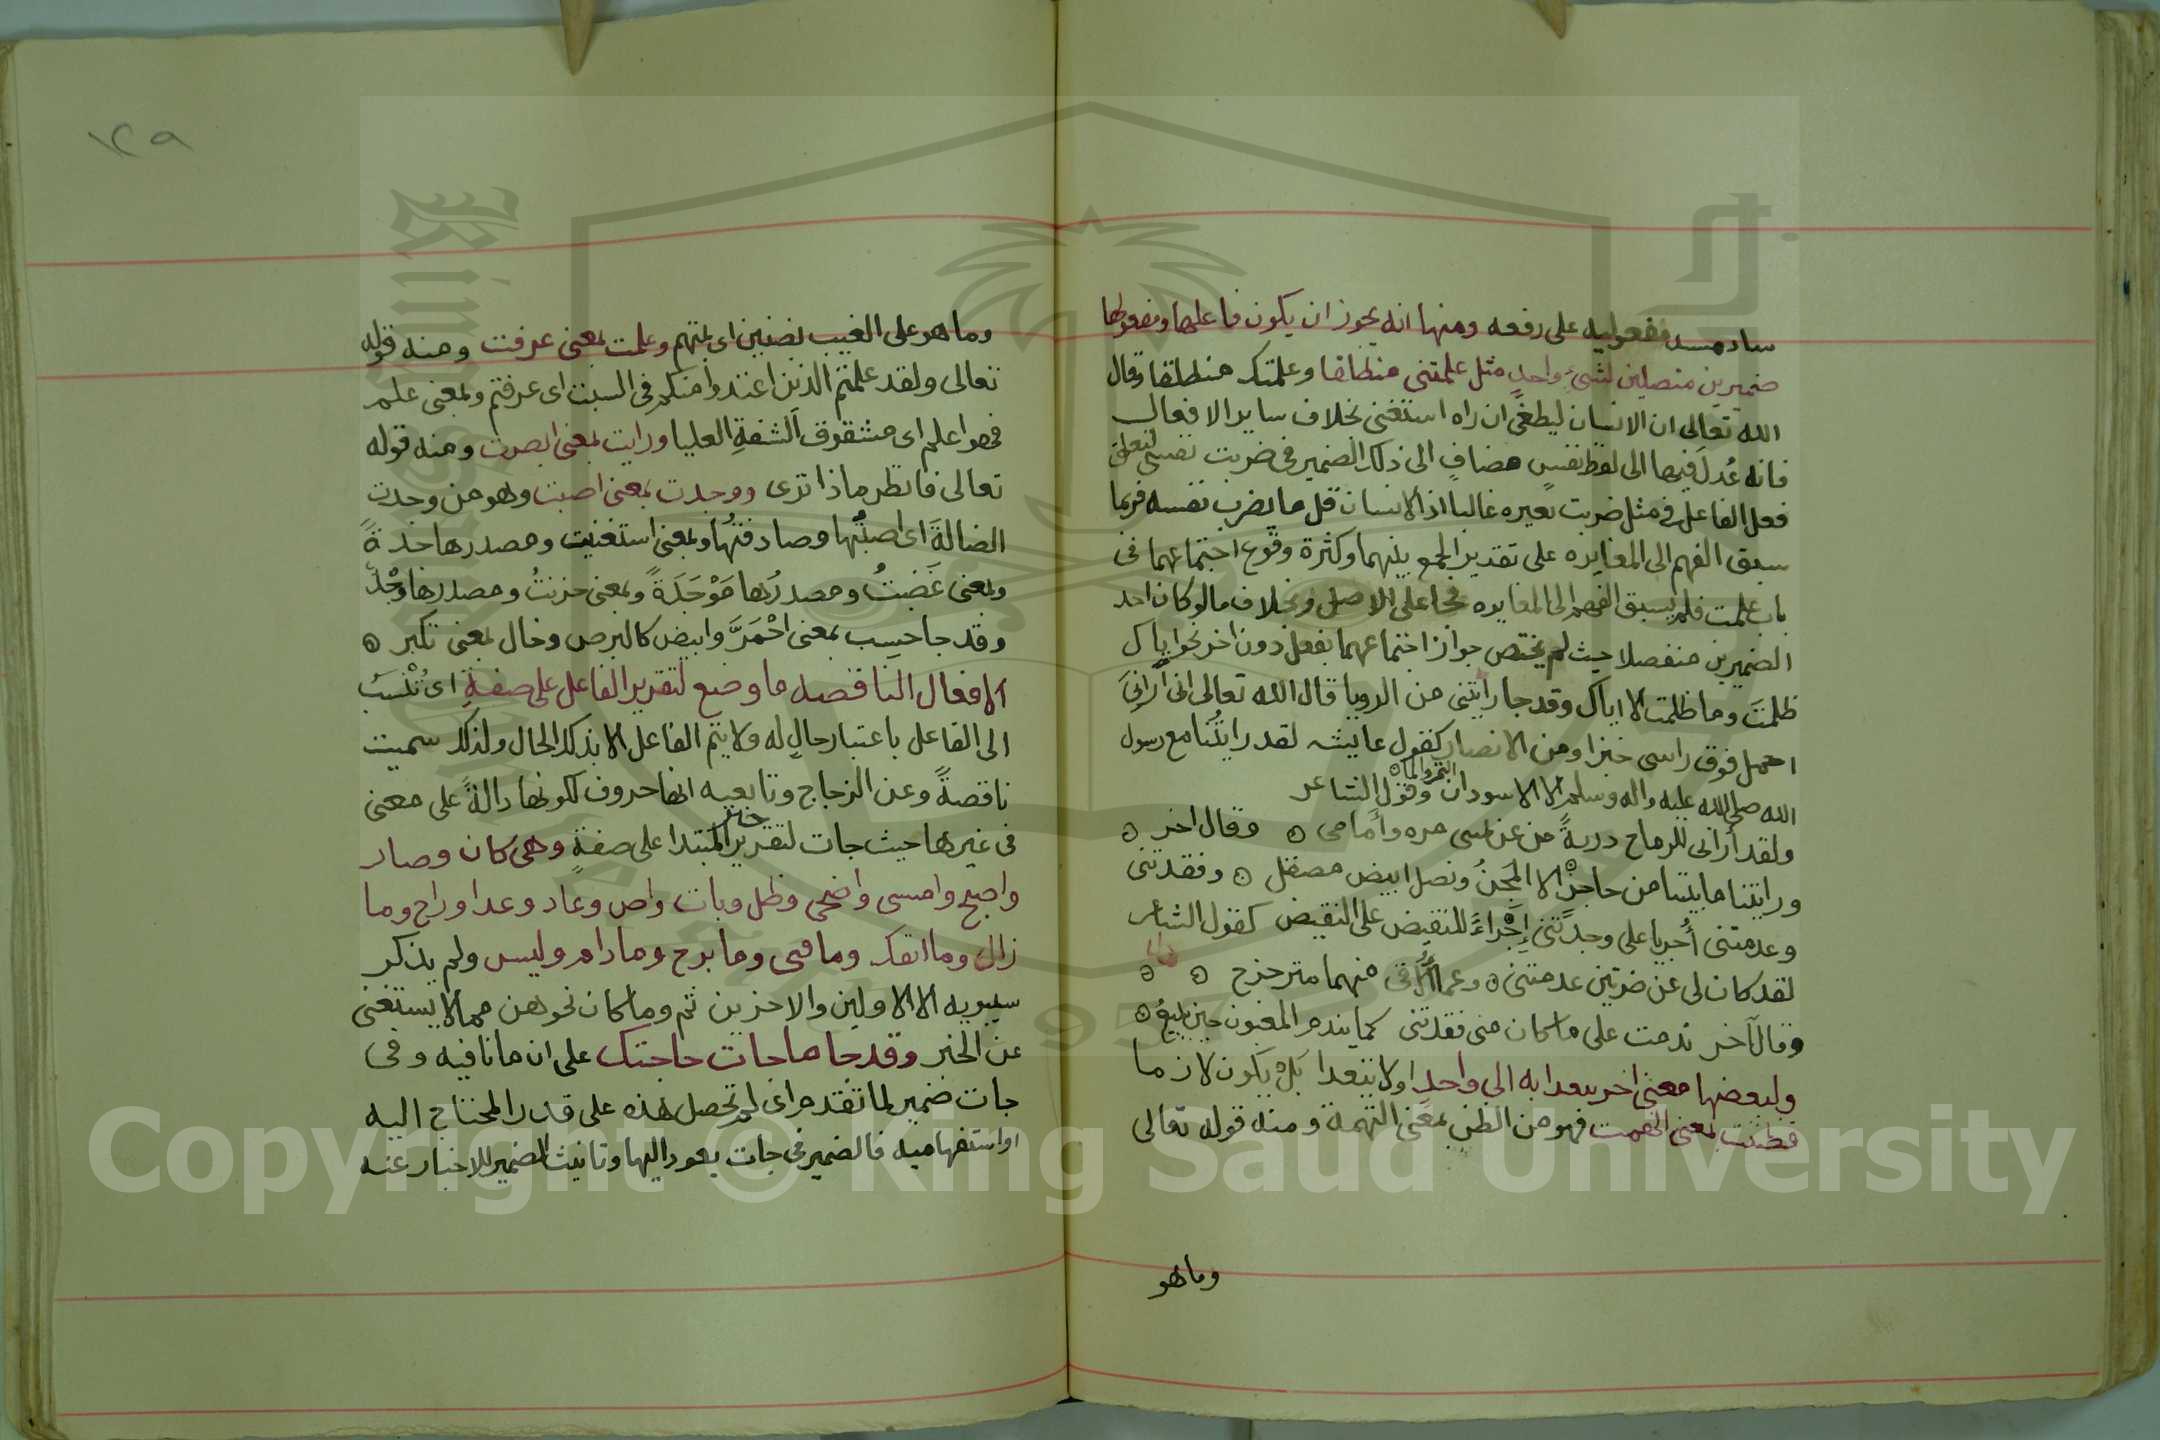 ساد مسد مفعوليه على رفعه ومنها انه يجوز ان يكون فاعلها ومفعولها
ضميرين متصلين لشىء واحد مثل علمتنى منطلقا وعلمتك منطلقا وقال
الله تعالى ان الانسان ليطغى ان راه استغنى بخلاف ساير الافعال
فانه عُدل فيها الى لفظ نفس مضاف الى ذلك الضمير فى ضربت نفسى لتعلق
فعل الفاعل فى مثل ضربت بغيره غالبا اذ الانسان قل ما يضرب نفسه فربما
سبق الفهم الى المغايره على تقدير الجمع بينهما وكثرة وقوع اجتماعهما فى
باب علمت فلم يسبق الفهم الى المغايره فجا على الاصل وبخلاف ما لو كان احد
الضميرين منفصلا حيث لم يختص جواز اجتماعهما بفعل دون اخر نحو اياك
ظلمتَ وما ظلمت الا اياك وقد جا رايتنى من الرويا قال الله تعالى انى ارانى
احمل فوق راسى خبزا ومن الابصار كقول عايشه لقد رايتُنا مع رسول
الله صلى الله عليه واله وسلم الا الاسودان التمر والماء وقول الشاعر
ولقد أرانى للرماح دريةً من عن يمينى مره وأمامى ۞ وقال اخر ۞
ورايتنا ما بيننا من حاجزٌ الا المجنُ ونصل ابيض مصقل ۞ وفقدتنى
وعدمتنى أجريا على وجدتنى إجراءً للنقيض على النقيض كقول الشاعر
لقد كان لى عن ضرتين عدمتنى ۞ وعما أُلاقى منهما متزحزح ۞ ۞
وقال آخر ندمت على ما كان منى فقدتنى كما يندم المغبون حين يبيعُ ۞
ولبعضها معنى اخر يتعدا به الى واحد او لا يتعدا بل يكون لازما
فظننت بمعنى اتهمت فهو من الظن بمعنى التهمة ومنه قوله تعالى
وما هو
١٢٩
وما هو على الغيب بضنين اى بمتهم وعلمت بمعنى عرفت ومنه قوله
تعالى ولقد علمتم الذين اعتدوا منكم فى السبت اى عرفتم وبمعنى علم
فهو اعلم اى مشقوق الشفةِ العليا ورايت بمعنى ابصرت ومنه قوله
تعالى فانظر ماذا ترى ووجدت بمعنى اصبت وهو من وجدت
الضالةَ اى اصبتُها وصادفتُها وبمعنى استغنيت ومصدرها جدةً
وبمعنى غَضِبتُ ومصدرُها مَوْجَدَةً وبمعنى حزنتُ ومصدرها وَجْدٌ
وقد جا حسِب بمعنى احْمَرَّ وابيض كالبرص وخال بمعنى تكبر ۞
الافعال الناقصه ما وضع لتقرير الفاعل على صفةِ اى تُنْسَبُ
الى الفاعل باعتبار حالٍ له ولا يتم الفاعل الا بذلك الحال ولذلك سميت
ناقصةً وعن الزجاج وتابعيه انها حروف لكونها دالةً على معنى
فى غيرها حيث جات لتقرير خبر المبتدا على صفةٍ وهى كان وصار
واصبح وامسى واضحى وظل وبات واض وعاد وغدا وراح وما
زال وما انفك وما فتى وما برح وما دام وليس ولم يذكر
سيبويه الا الاولين والاخرين ثم وما كان نحوهن مما لا يستغنى
عن الخبر وقد جا ما جات حاجتك على ان ما نافيه وفى
جات ضمير لما تقدم اى لم تحصل هذه على قدر المحتاج اليه
او استفهاميه فالضمير فى جات يعود اليها وتانيث الضمير للاخبار عنه
Copyright © King Saud University